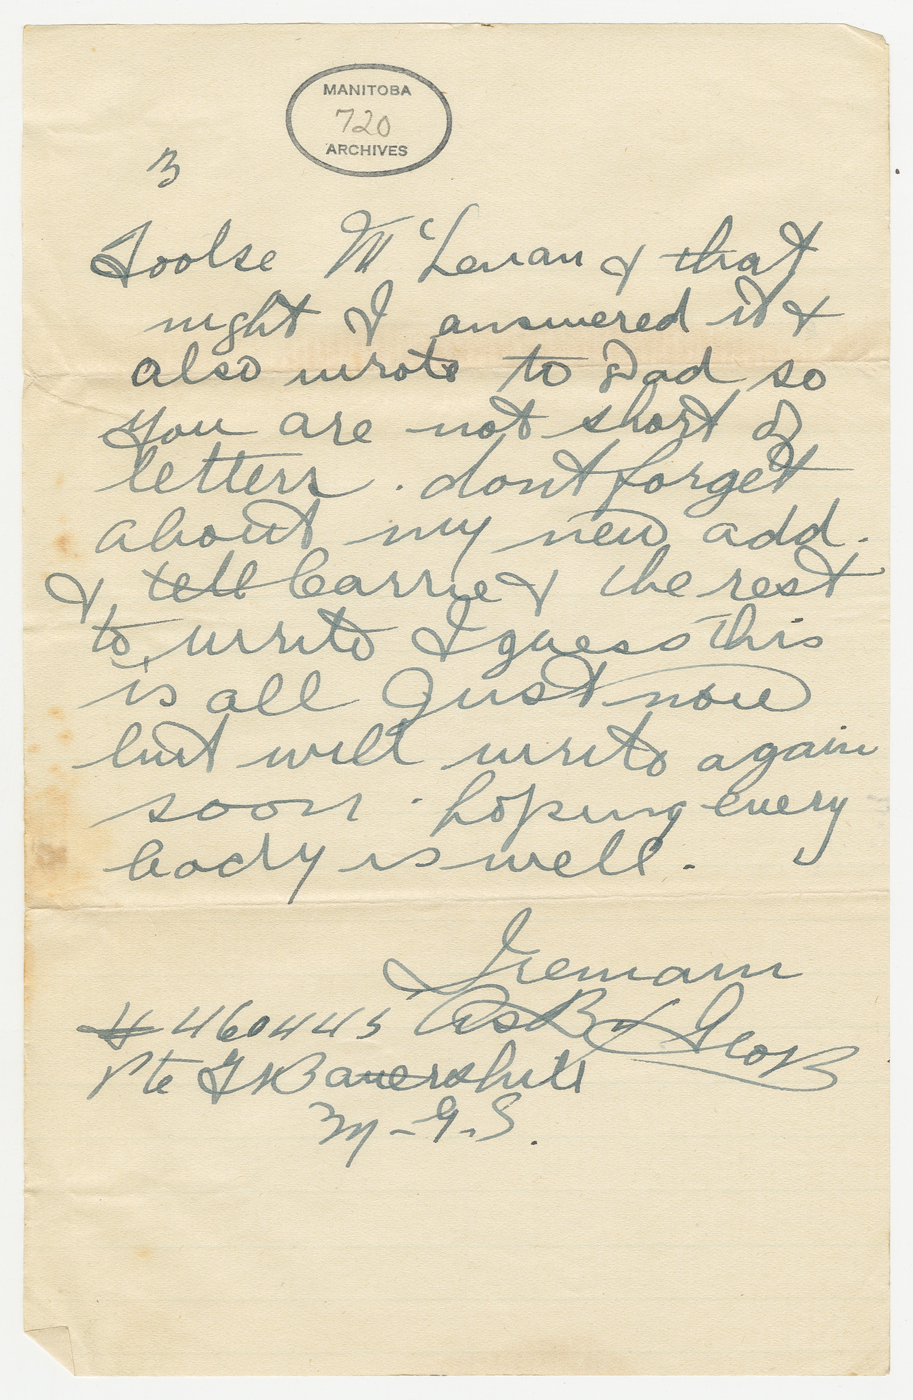 MANITOBA
720
ARCHIVES
3
Toolse McLenan & that
night I answered it &
also wrote to Dad so
you are not short of
letters. dont forget
about my new add.
& tell Carrie & the rest
to write I guess this
is all Just now
but will write again
soon. hoping every
body is well.
I remain
# 460445 As B4 Geo B
Pte G B
M-G-S.